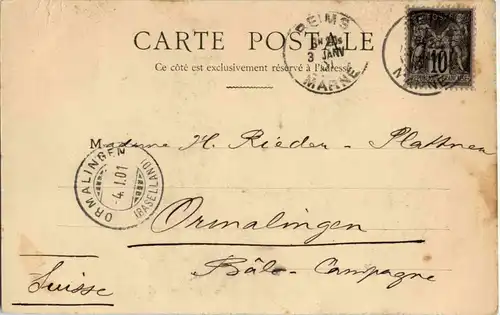 CARTE POSTALE
Ce côté est exclusivement réservé à l'adresse
REIMS
3 JANV
MARNE
10
MARNE
Madame H. Rieder - Plattner
ORMALINGEN
-4.I.01
(BASELLAND)
Ormalingen
Bâle-Campagne
Suisse